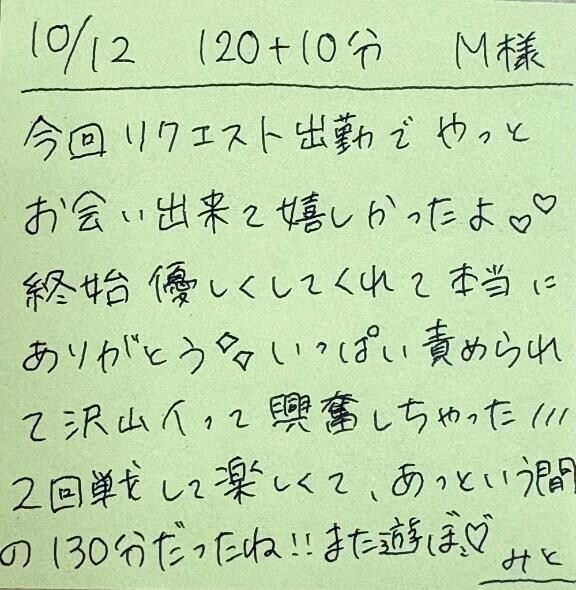 10/12 120+10分 M様
今回リクエスト出勤でやっと
お会い出来て嬉しかったよ♡♡
終始優しくしてくれて本当に
ありがとう✧✧いっぱい責められ
て沢山イって興奮しちゃった///
2回戦して楽しくて、あっという間
の130分だったね!!また遊ぼ♡
みと